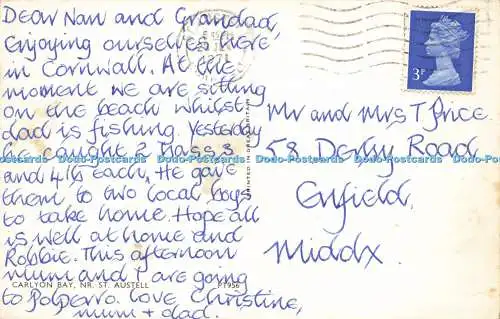 Dear Nan and Grandad,
Enjoying ourselves here
in Cornwall. At the
moment we are sitting
on the beach whilst
dad is fishing. Yesterday
he caught 2 Bass 3
and 4 lb each. He gave
them to two local boys
to take home. Hope all
is well at home and
Robbie. This afternoon
mum and I are going
to Polperro. Love Christine,
mum + dad.
CARLYON BAY, NR. ST. AUSTELL
PT956
PRINTED IN GREAT BRITAIN
3P
Mr and Mrs T Price.
58 Derby Road
Enfield,
Middx.
Dodo-Postcards Dodo-Postcards Dodo-Postcards Dodo-Postcards Dodo-Postcards Dodo-Postcards